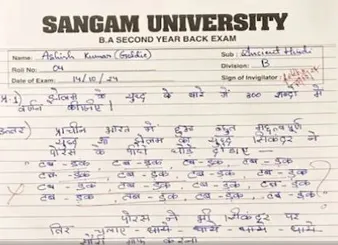 SANGAM UNIVERSITY
B.A SECOND YEAR BACK EXAM
Name: Ashish Kumar (Goldie) Sub: Ancient Hindi
Roll No: 04 Division: B
Date of Exam: 14/10/24 Sign of Invigilator:
झेलम के युद्ध के बारे में 300 शब्दों में
वर्णन कीजिए।
प्राचीन भारत में हुआ बहुत महत्वपूर्ण
युद्ध झेलम का युद्ध सिकंदर ने
पोरस के पीछे घोड़े दौड़ाए –
टब - डक, टब - डक, टब - डक,
टब - डक, टब - डक, टब - डक,
टब - डक, टब - डक, टब - डक,
टब - डक, टब - डक, टब - डक,
पोरस ने भी सिकंदर पर
तिर चलाए - धाये - धाये - धाये - धाये.